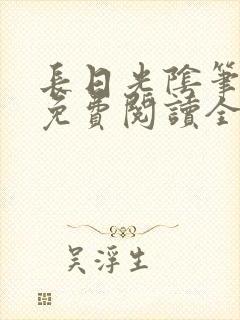 長日光陰筆
免費閱讀全
吳浮生